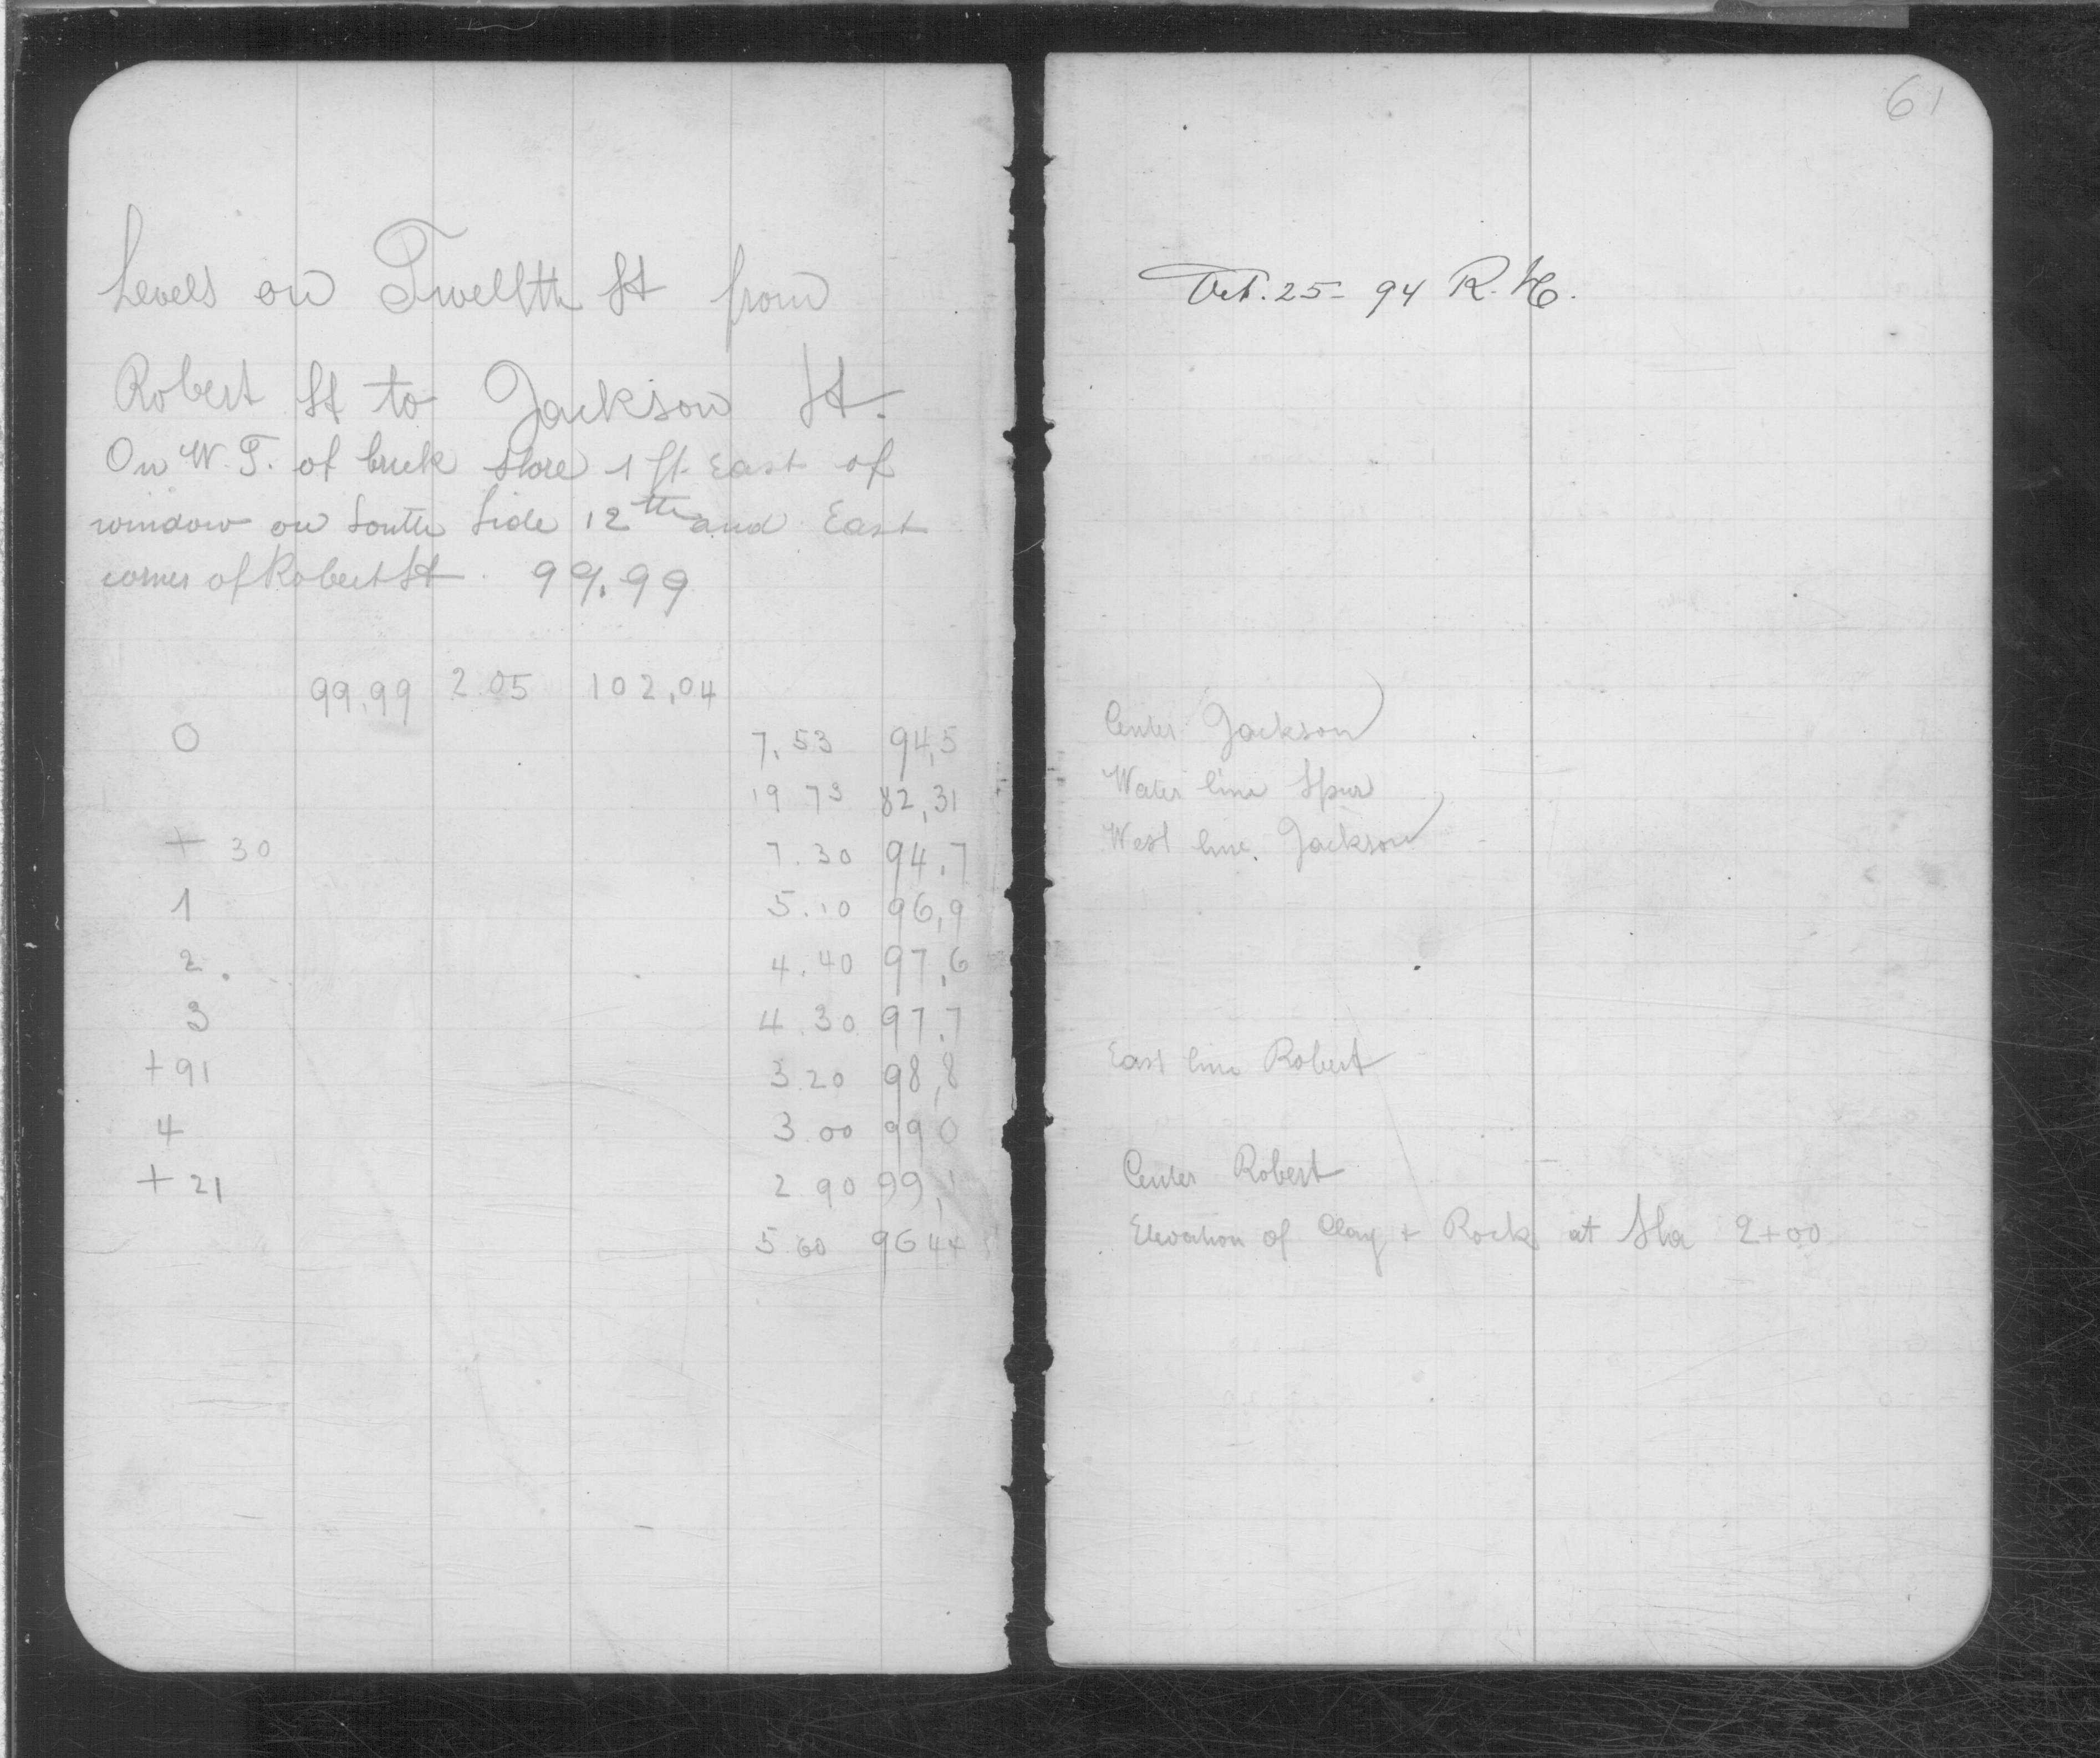 Levels on Twelfth St from
Robert St to Jackson St.
On W. T. of brick store 1 ft. East of
window on South Side 12th and East
corner of Robert St 99.99
99.99 2.05 102.04
0 7.53 94.5
19 73 82.31
+ 30 7.30 94.7
1 5.10 96.9
2. 4.40 97.6
3 4.30 97.7
+91 3.20 98.8
4 3.00 99 0
+ 21 2.90 99.1
5.60 96 44
61
Oct. 25 - 94 R. H.
Center Jackson
Water line Spur
West line Jackson
East line Robert
Center Robert
Elevation of Clay + Rock at Sta 2+00